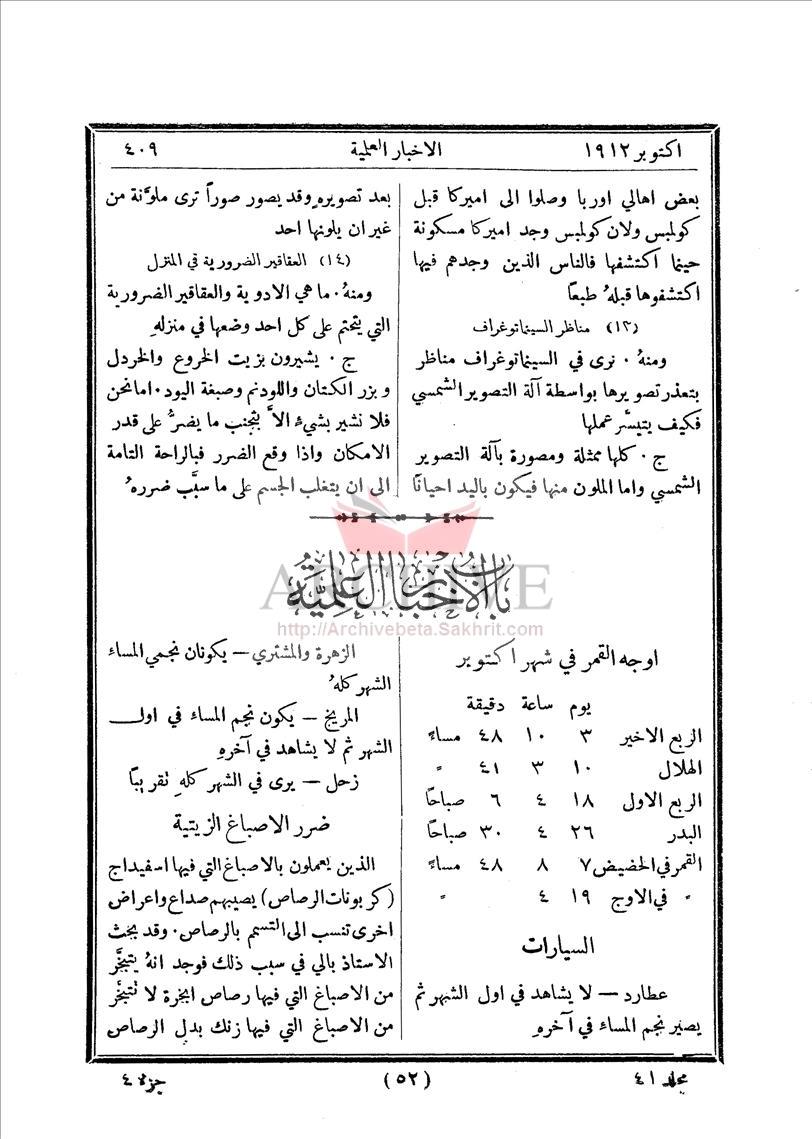 اكتوبر ١٩١٢
الاخبار العلمية
٤٠٩
بعض اهالي اوربا وصلوا الى اميركا قبل
كولمبس ولان كولمبس وجد اميركا مسكونة
حينما اكتشفها فالناس الذين وجدهم فيها
اكتشفوها قبلهُ طبعاً
(١٣) مناظر السيناتوغراف
ومنهُ ٠ نرى في السيناتوغراف مناظر
يتعذر تصويرها بواسطة آلة التصوير الشمسي
فكيف يتيسَّر عملها
ج ٠ كلها ممثلة ومصورة بآلة التصوير
الشمسي واما الملون منها فيكون باليد احيانًا
بعد تصويرهِ وقد يصور صوراً ترى ملوَّنة من
غير ان يلونها احد
(١٤) العقاقير الضرورية في المنزل
ومنهُ ٠ ما هي الادوية والعقاقير الضرورية
التي يتحتم على كل احد وضعها في منزلهِ
ج ٠ يشيرون بزيت الخروع والخردل
وبزر الكتان واللودنم وصبغة اليود ٠ اما نحن
فلا نشير بشيءٍ الاَّ بتجنب ما يضرُّ على قدر
الامكان واذا وقع الضرر فبالراحة التامة
الى ان يتغلب الجسم على ما سبَّب ضررهُ
باب الاخبار العلمية
ARCHIVE
http://Archivebeta.Sakhrit.com
اوجه القمر في شهر اكتوبر
يوم ساعة دقيقة
الربع الاخير ٣ ١٠ ٤٨ مساءً
الهلال ١٠ ٣ ٤١ "
الربع الاول ١٨ ٤ ٦ صباحًا
البدر ٢٦ ٤ ٣٠ صباحًا
القمر في الحضيض ٧ ٨ ٤٨ مساءً
" في الاوج ١٩ ٤ "
السيارات
عطارد – لا يشاهد في اول الشهر ثم
يصير نجم المساء في آخرهِ
الزهرة والمشتري – يكونان نجمي المساء
الشهر كلهُ
المريخ – يكون نجم المساء في اول
الشهر ثم لا يشاهد في آخرهِ
زحل – يرى في الشهر كلهِ تقريبًا
ضرر الاصباغ الزيتية
الذين يعملون بالاصباغ التي فيها اسفيداج
(كربونات الرصاص) يصيبهم صداع واعراض
اخرى تنسب الى التسمم بالرصاص ٠ وقد بحث
الاستاذ بالي في سبب ذلك فوجد انهُ يتبخَّر
من الاصباغ التي فيها رصاص ابخرة لا تتبخَّر
من الاصباغ التي فيها زنك بدل الرصاص
مجلد ٤١
(٥٢)
جزء ٤